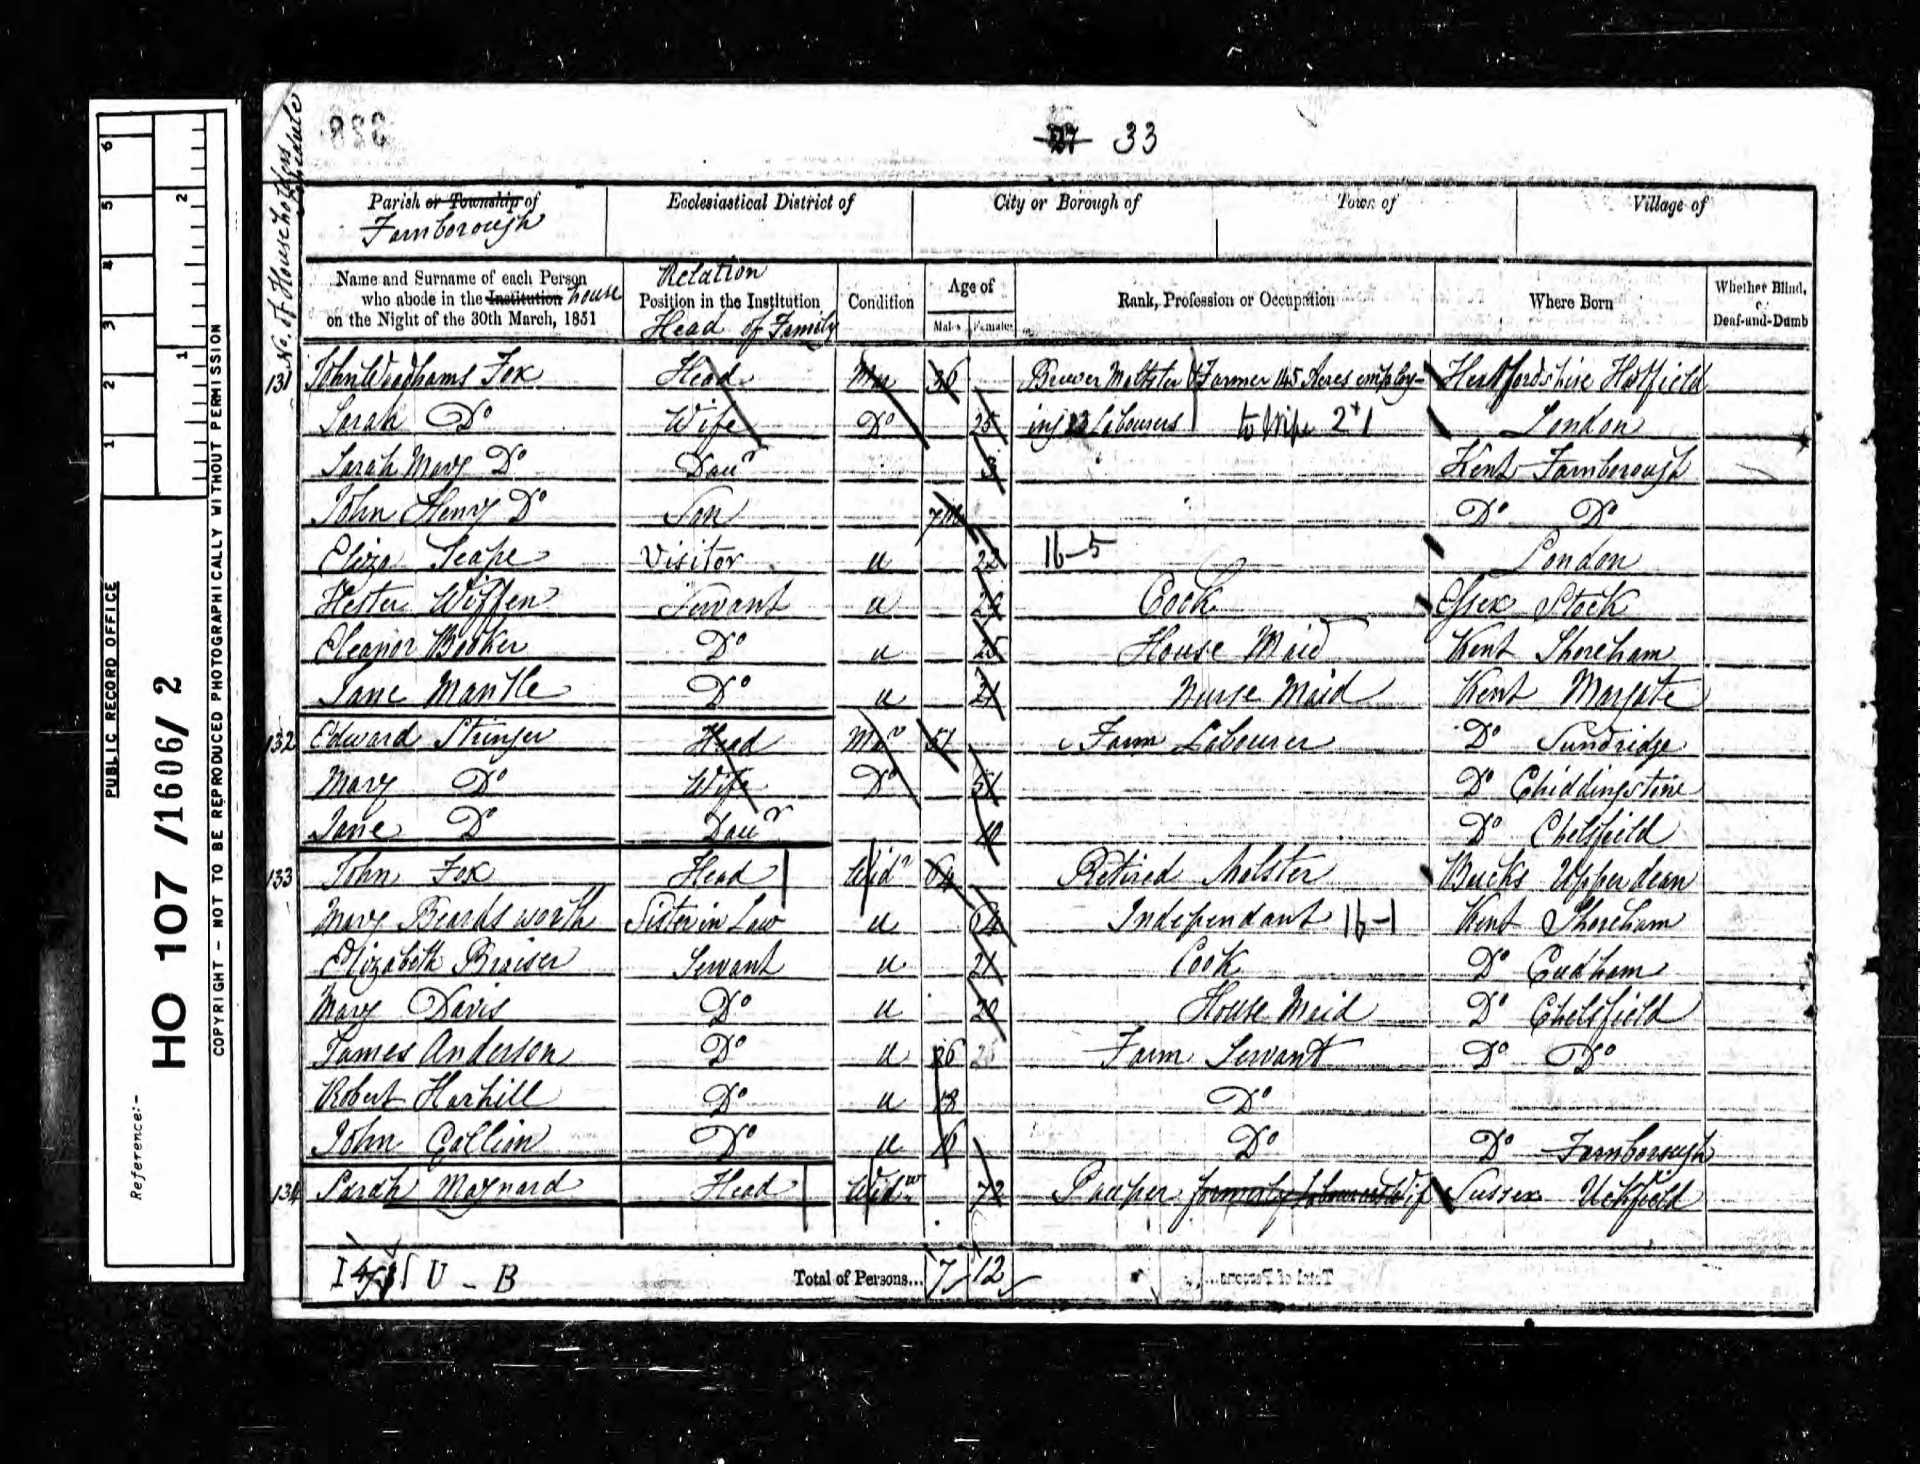 33
No. of Householders Schedule
Parish or Township of Ecclesiastical District of City or Borough of Town of Village of
Farnborough
Name and Surname of each Person who abode in the Institution house on the Night of the 30th March, 1851 Relation Position in the Institution Head of Family Condition Age of Males Females Rank, Profession or Occupation Where Born Whether Blind, or Deaf-and-Dumb
131 John Woodhams Fox Head Mar 36 Brewer Maltster & Farmer 145 Acres employ- Hertfordshire Hatfield
Sarah Do Wife Do 25 ing Labourers to Wife 2+1 London
Sarah Mary Do Daur 3 Kent Farnborough
John Henry Do Son 7m Do Do
Eliza Seape Visitor u 22 16-5 London
Hester Wiffen Servant u Cook Essex Stock
Eleanor Booker Do u 25 House Maid Kent Shoreham
Jane Mantle Do u 21 Nurse Maid Kent Margate
132 Edward Stringer Head Mar 51 Farm Labourer Do Sundridge
Mary Do Wife Do 51 Do Chiddingstone
Jane Do Daur 10 Do Chelsfield
133 John Fox Head Widr 64 Retired Malster Bucks Upper dean
Mary Beardsworth Sister in Law u 64 Independant 16-1 Kent Shoreham
Elizabeth Braiser Servant u 21 Cook Do Cudham
Mary Davis Do u 20 House Maid Do Chelsfield
James Anderson Do u 26 Farm Servant Do Do
Robert Harhill Do u 18 Do
John Collion Do u 16 Do Do Farnborough
134 Sarah Maynard Head Widw 72 Pauper formerly Labourers Wife Sussex Uckfield
U - B Total of Persons... 7 12
PUBLIC RECORD OFFICE
Reference:-
HO 107/1606/2
COPYRIGHT - NOT TO BE REPRODUCED PHOTOGRAPHICALLY WITHOUT PERMISSION
1 2 3 4 5 6
1 2